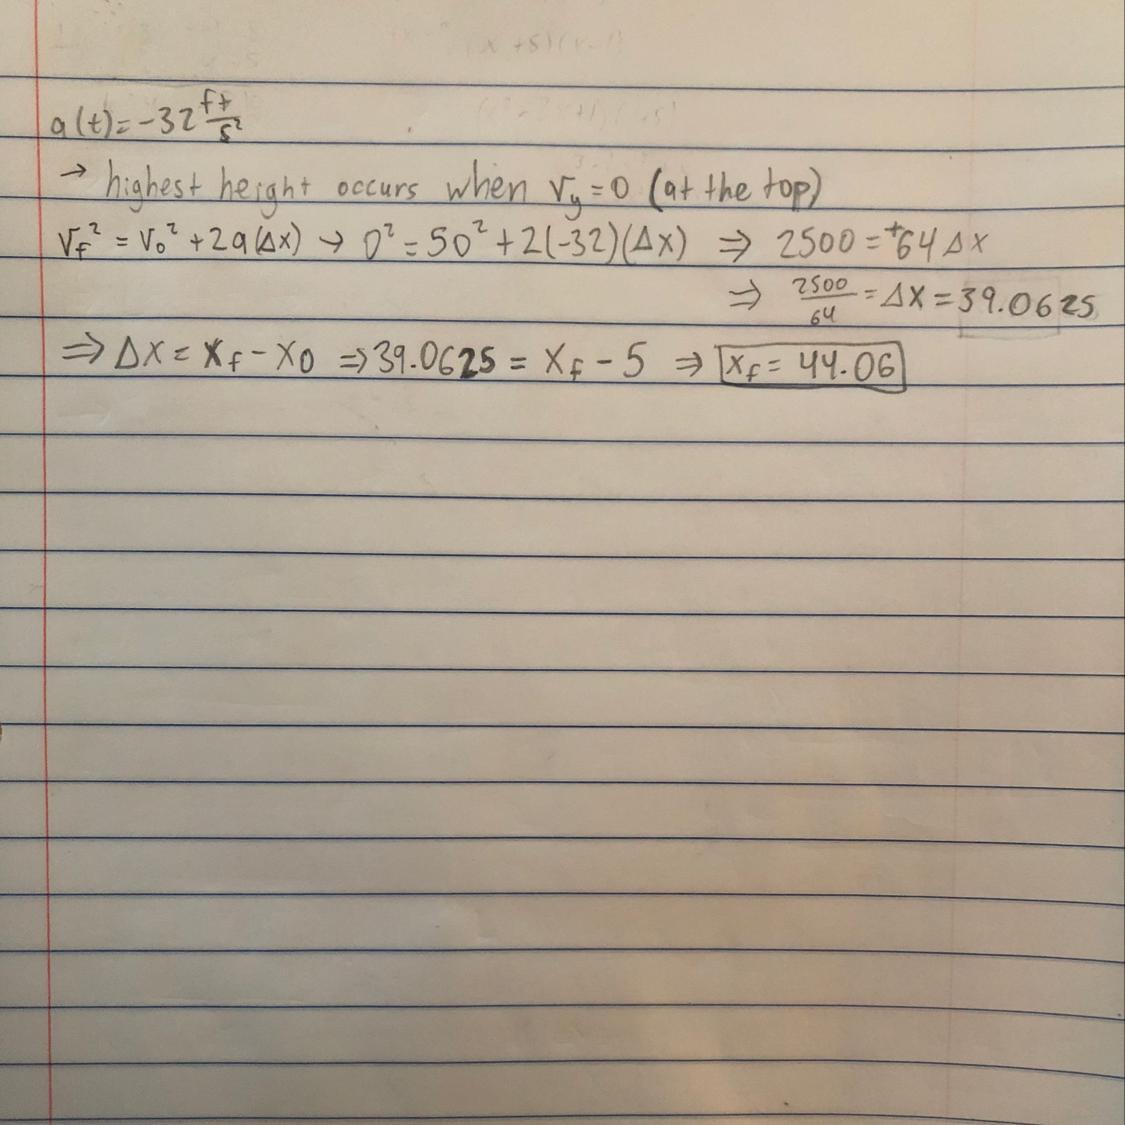 a(t)=-32 ft/s²
→ highest height occurs when Vy=0 (at the top)
Vf²=V0²+2a(Δx) → 0²=50²+2(-32)(Δx) ⇒ 2500=+64Δx
⇒ 2500/64=Δx=39.0625
⇒Δx=xf-x0 ⇒39.0625=xf-5 ⇒ xf=44.06